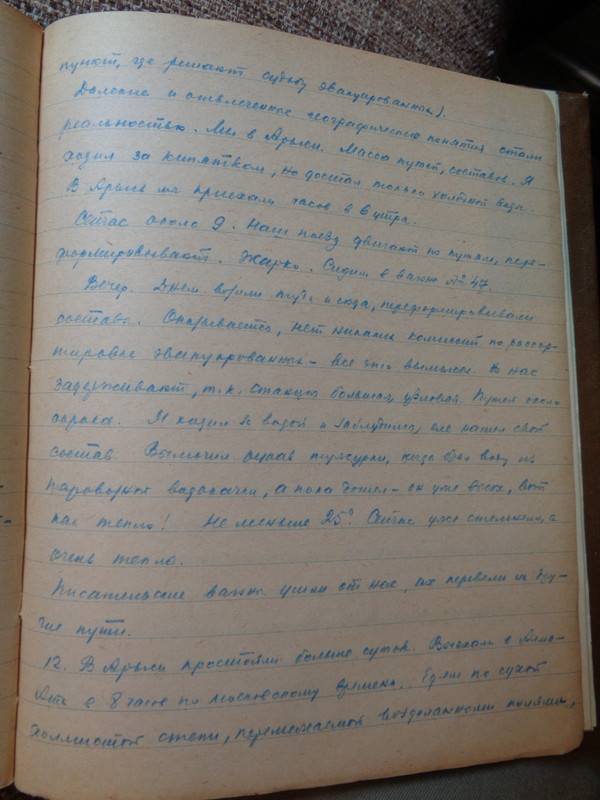 пункт, где решают судьбу эвакуированных).
Далекие и отвлеченные географические понятия стали
реальностью. Мы в Арыси. Масса путей, составов. Я
ходил за кипятком, но достал только холодной воды.
В Арысь мы приехали часов в 6 утра.
Сейчас около 9. Наш поезд двигают по путям, пере-
формировывают. Жарко. Сидим в вагоне № 47.
Вечер. Днем возили туда и сюда, переформировывали
составы. Оказывается, нет никаких комиссий по рассор-
тировке эвакуированных - все это вымысел. А нас
задерживают, т.к. станция большая, узловая. Путей около
сорока. Я ходил за водой и заблудился, еле нашел свой
состав. Вымочил рукав тужурки, когда брал воду из
паровозной водокачки, а пока дошел - он уже высох, вот
как тепло! Не меньше 25°. Сейчас уже стемнело, а
очень тепло.
Писательские вагоны ушли от нас, их перевели на дру-
гие пути.
12. В Арыси простояли больше суток. Выехали в Алма-
Ата в 8 часов по московскому времени. Едем по сухой
холмистой степи, перемежаемой возделанными полями,